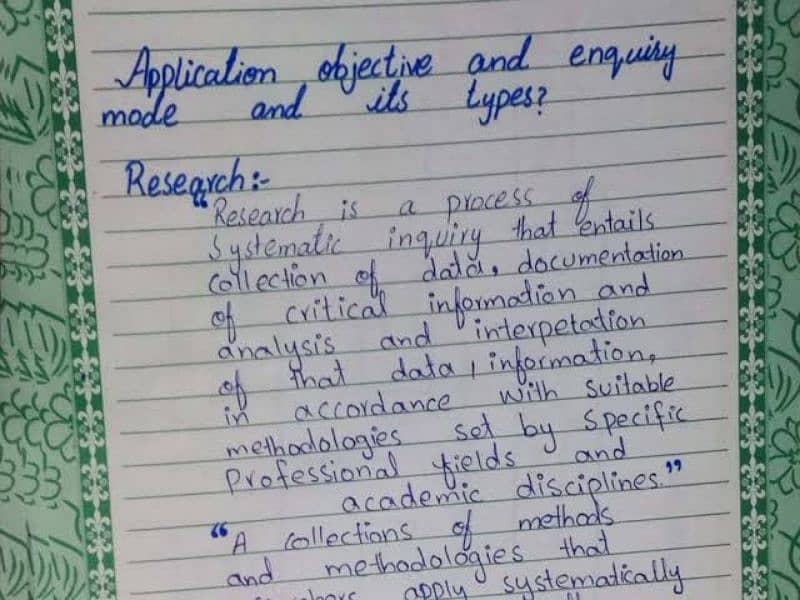 Application, objective and enquiry
mode and its types?
Research:-
"Research is a process of
Systematic inquiry that entails
collection of data, documentation
of critical information and
analysis and interpetation
of that data, information,
in accordance with suitable
methodologies set by specific
Professional fields and
academic disciplines."
"A collections of methods
and methodologies that
apply systematically